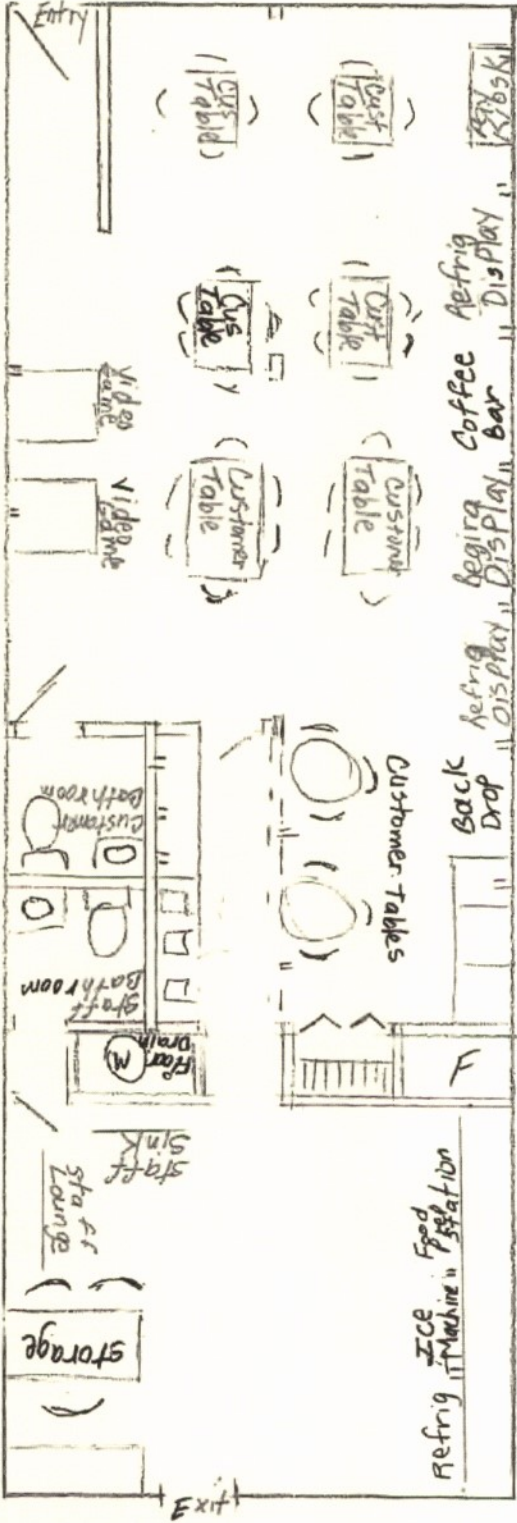 Entry
Cus
Table
Cust
Table
Pay
Kiosk
Cus
Table
Cust
Table
Refrig
Display
Video
Game
Coffee
Bar
Video
Game
Customer
Table
Customer
Table
Begira
Display
Refrig
Display
Customer
Bathroom
Customer Tables
Back
Drop
Staff
Bathroom
Floor
Drain
M
F
Staff
Sink
Staff
Lounge
Storage
Refrig
Ice
Machine
Food
Prep
Station
Exit